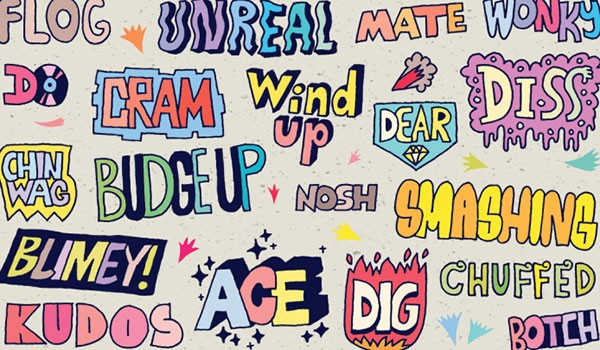 FLOG
UNREAL
MATE
WONKY
DO
CRAM
Wind
up
DEAR
DISS
CHIN
WAG
BUDGE UP
NOSH
SMASHING
BLIMEY!
ACE
DIG
CHUFFED
KUDOS
BOTCH